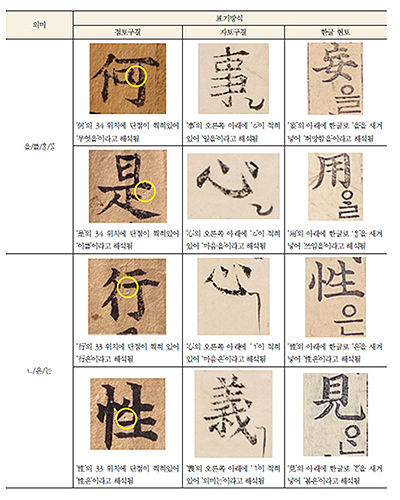 의미
표기방식
점토구결
자토구결
한글 현토
何
事
妄을
'何'의 34 위치에 단점이 찍혀있어
'무엇을'이라고 해석됨
'事'의 오른쪽 아래에 적혀
있어 '일을'이라고 해석됨
'妄'의 아래에 한글로 '을'을 새겨
넣어 '허망함을'이라고 해석됨
是
心
用
'是'의 34 위치에 단점이 찍혀있어
'이를'이라고 해석됨
'心'의 오른쪽 아래에 적혀
있어 '마음을'이라고 해석됨
'用'의 아래에 한글로 새겨
넣어 '쓰임을'이라고 해석됨
ㄴ/은/는
行
心
性은
'行'의 33 위치에 단점이 찍혀 있어
'行은'이라고 해석됨
'心'의 오른쪽 아래에 적혀
있어 '마음은'이라고 해석됨
'性'의 아래에 한글로 '은'을 새겨
넣어 '性은'이라고 해석됨
性
義
見
'性'의 33 위치에 단점이 찍혀 있어
'性은'이라고 해석됨
'義'의 오른쪽 아래에 적혀
있어 '의미는'이라고 해석됨
'見'의 아래에 한글로 새겨
넣어 '봄은'이라고 해석됨